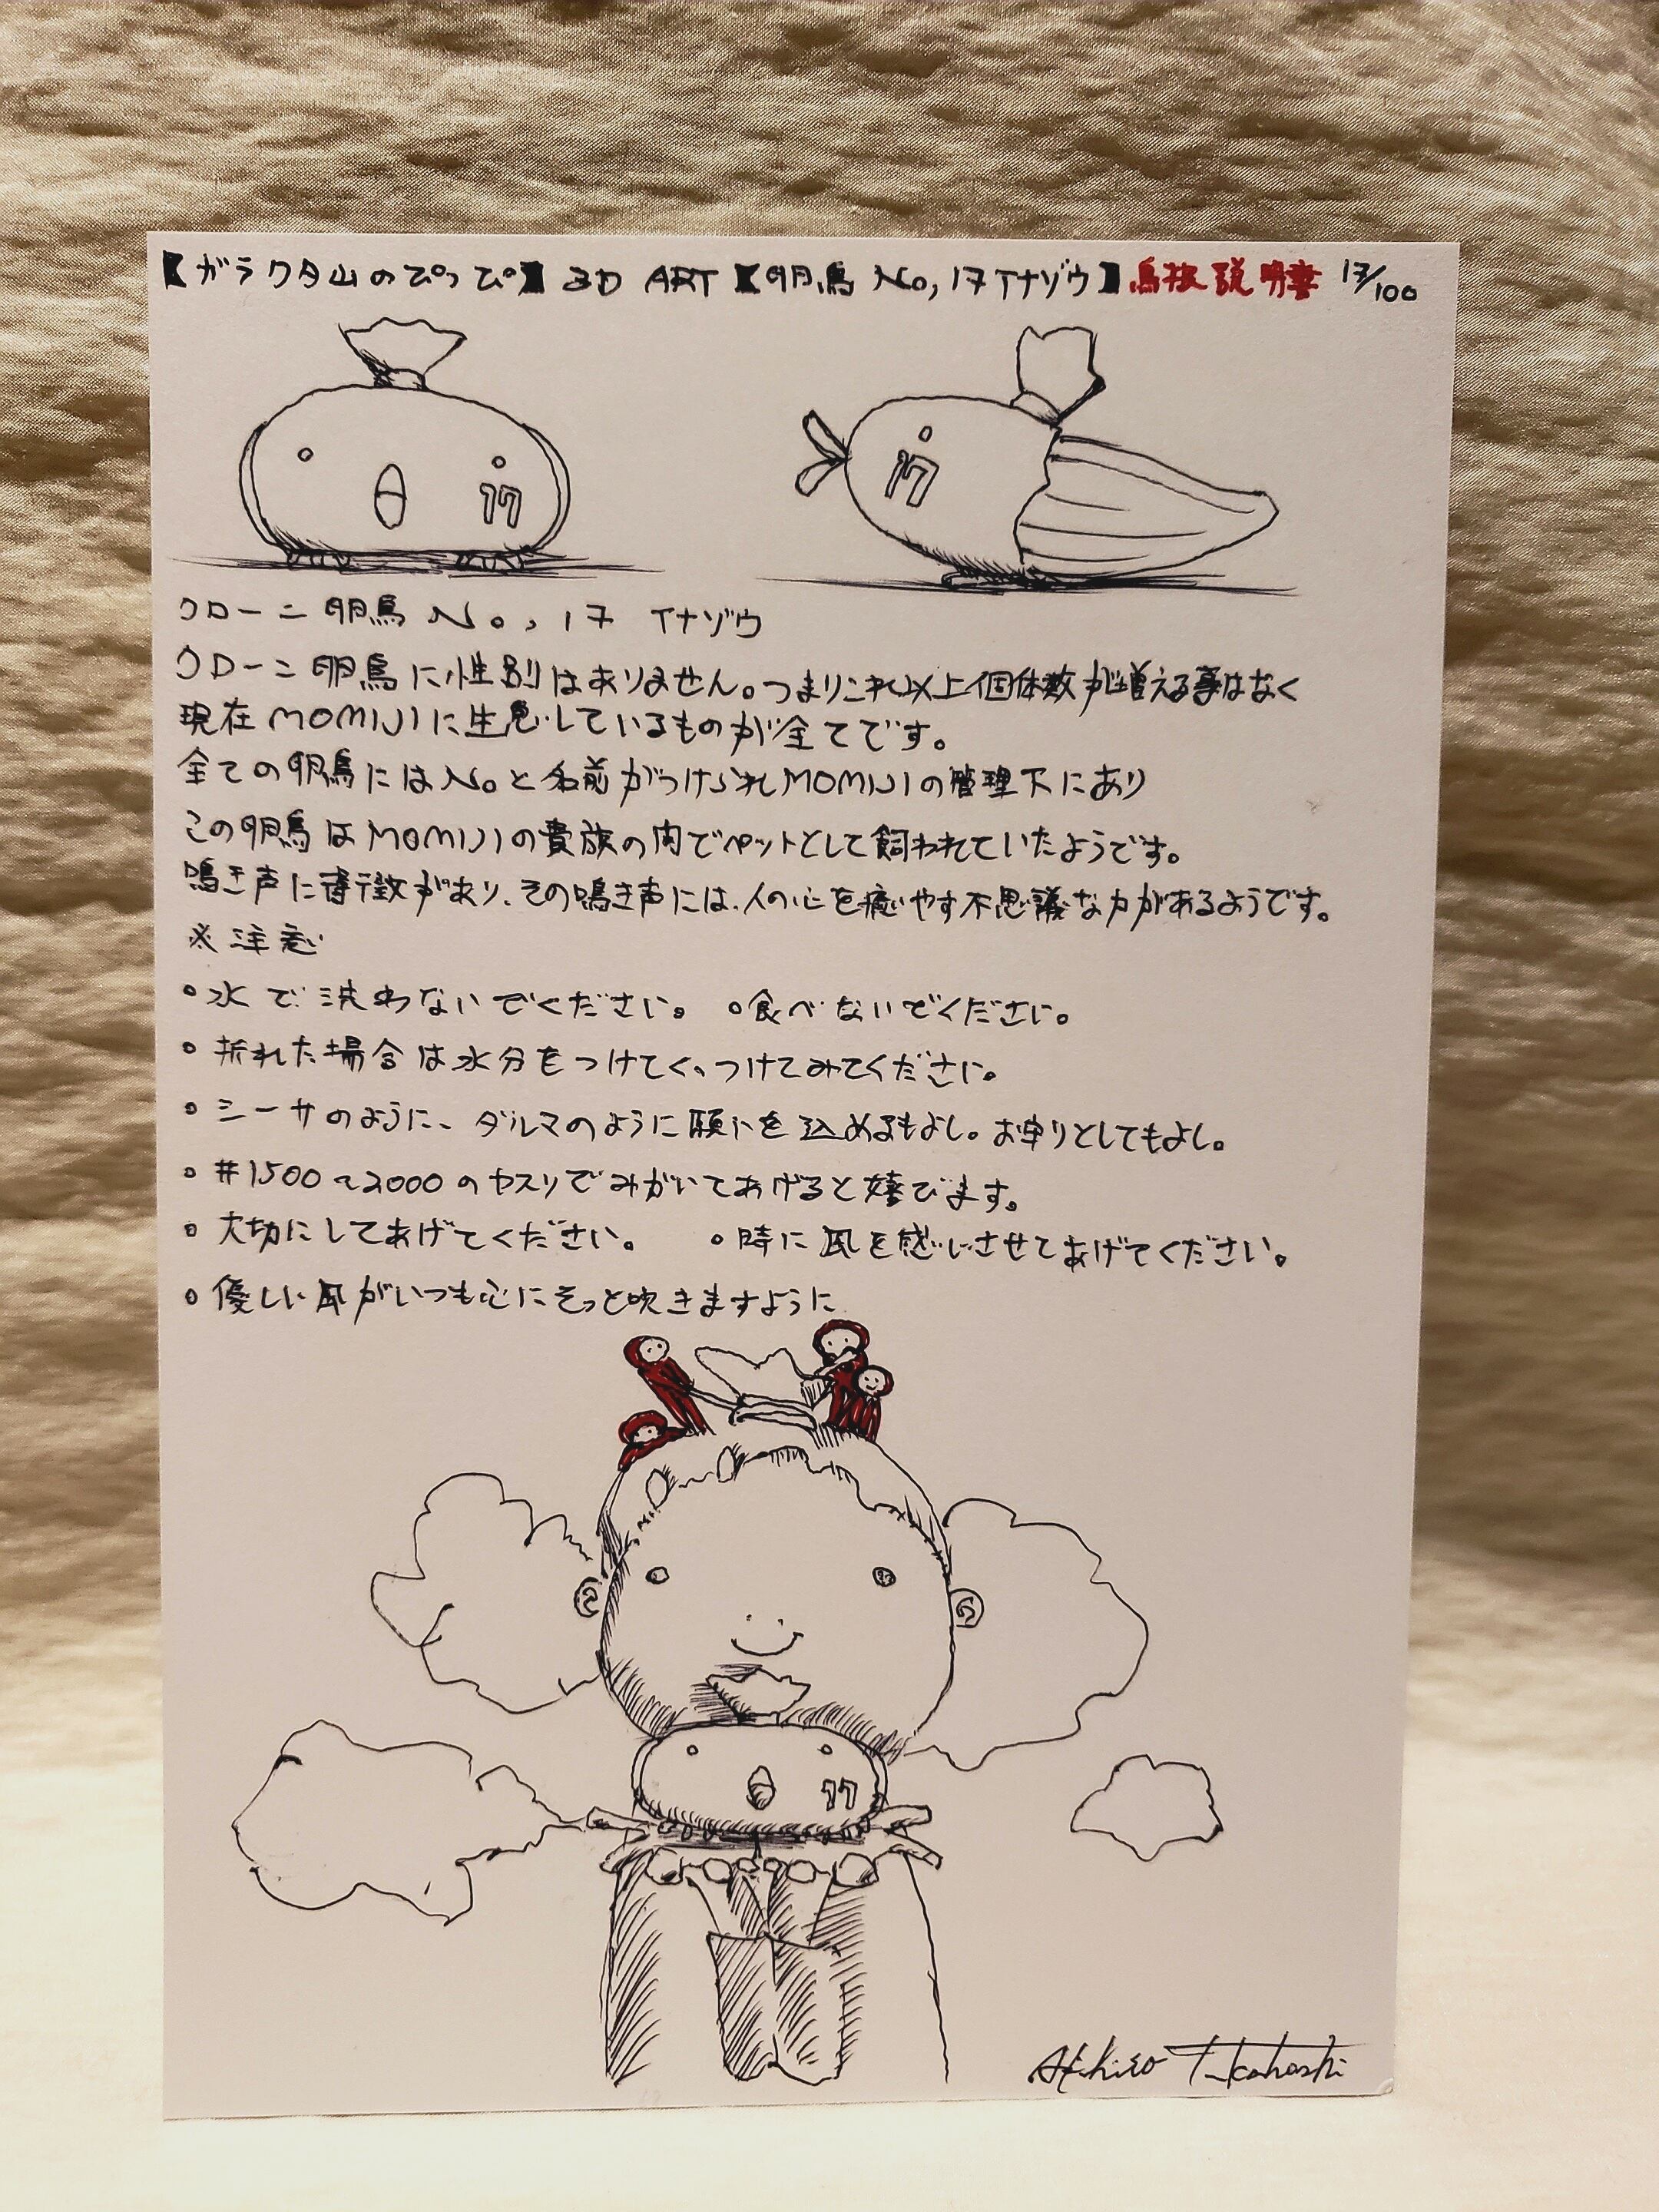 【ガラクタ山のぴっぴ】3D ART【卵鳥 No,17 イナゾウ】鳥扱説明書 17/100
17
17
クローン卵鳥 No,17 イナゾウ
クローン卵鳥に性別はありません。つまりこれ以上個体数が増える事はなく
現在MOMIJIに生息しているものが全てです。
全ての卵鳥にはNoと名前がつけられMOMIJIの管理下にあり
この卵鳥はMOMIJIの貴族の間でペットとして飼われていたようです。
鳴き声に特徴があり、その鳴き声には、人の心を癒やす不思議な力があるようです。
※注意
・水で洗わないでください。 ・食べないでください。
・折れた場合は水分をつけてくっつけてみてください。
・シーサのように、ダルマのように願いを込めるもよし。お守りとしてもよし。
・#1500~2000のヤスリでみがいてあげると喜びます。
・大切にしてあげてください。 ・時に風を感じさせてあげてください。
・優しい風がいつも心にそっと吹きますように
17
Akihiro Takahashi